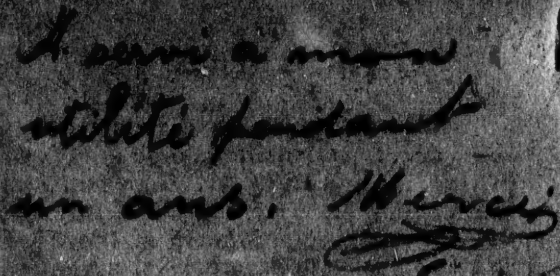 A servi a mon
utilité pendant
un ans. Merci